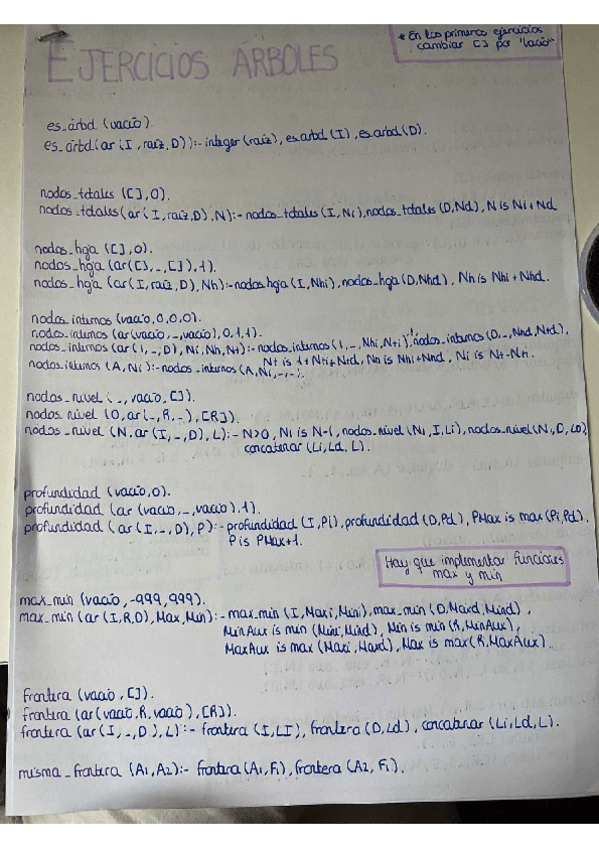 * En los primeros ejercicios
cambiar [] por "vacío"
EJERCICIOS ÁRBOLES
es_árbol (vacío).
es_árbol (ar (I, raíz, D)):- integer (raíz), es_árbol (I), es_árbol (D).
nodos_totales ([], 0).
nodos_totales (ar (I, raíz, D), N):- nodos_totales (I, Ni), nodos_totales (D, Nd), N is Ni + Nd.
nodos_hoja ([], 0).
nodos_hoja (ar([], _, []), 1).
nodos_hoja (ar(I, raíz, D), Nh):- nodos_hoja (I, Nhi), nodos_hoja (D, Nhd), Nh is Nhi + Nhd.
nodos_internos (vacío, 0, 0, 0).
nodos_internos (ar(vacío, _, vacío), 0, 1, 1).
nodos_internos (ar (I, _, D), Ni, Nh, Nt):- nodos_internos (I, _, Nhi, Nti), nodos_internos (D, _, Nhd, Ntd),
Nt is 1+Nti+Ntd, Nh is Nhi+Nhd, Ni is Nt-Nh.
nodos_internos (A, Ni):- nodos_internos (A, Ni, _, _).
nodos_nivel (_, vacío, []).
nodos_nivel (0, ar(_, R, _), [R]).
nodos_nivel (N, ar (I, _, D), L):- N>0, N1 is N-1, nodos_nivel (N1, I, Li), nodos_nivel (N1, D, Ld),
concatenar (Li, Ld, L).
profundidad (vacío, 0).
profundidad (ar (vacío, _, vacío), 1).
profundidad (ar (I, _, D), P):- profundidad (I, Pi), profundidad (D, Pd), PMax is max (Pi, Pd),
P is PMax+1.
Hay que implementar funciones
max y min
max_min (vacío, -999, 999).
max_min (ar (I, R, D), Max, Min):- max_min (I, Maxi, Mini), max_min (D, Maxd, Mind),
MinAux is min (Mini, Mind), Min is min (R, MinAux),
MaxAux is max (Maxi, Maxd), Max is max (R, MaxAux).
frontera (vacío, []).
frontera (ar(vacío, R, vacío), [R]).
frontera (ar(I, _, D), L):- frontera (I, LI), frontera (D, Ld), concatenar (Li, Ld, L).
misma_frontera (A1, A2):- frontera (A1, F1), frontera (A2, F1).